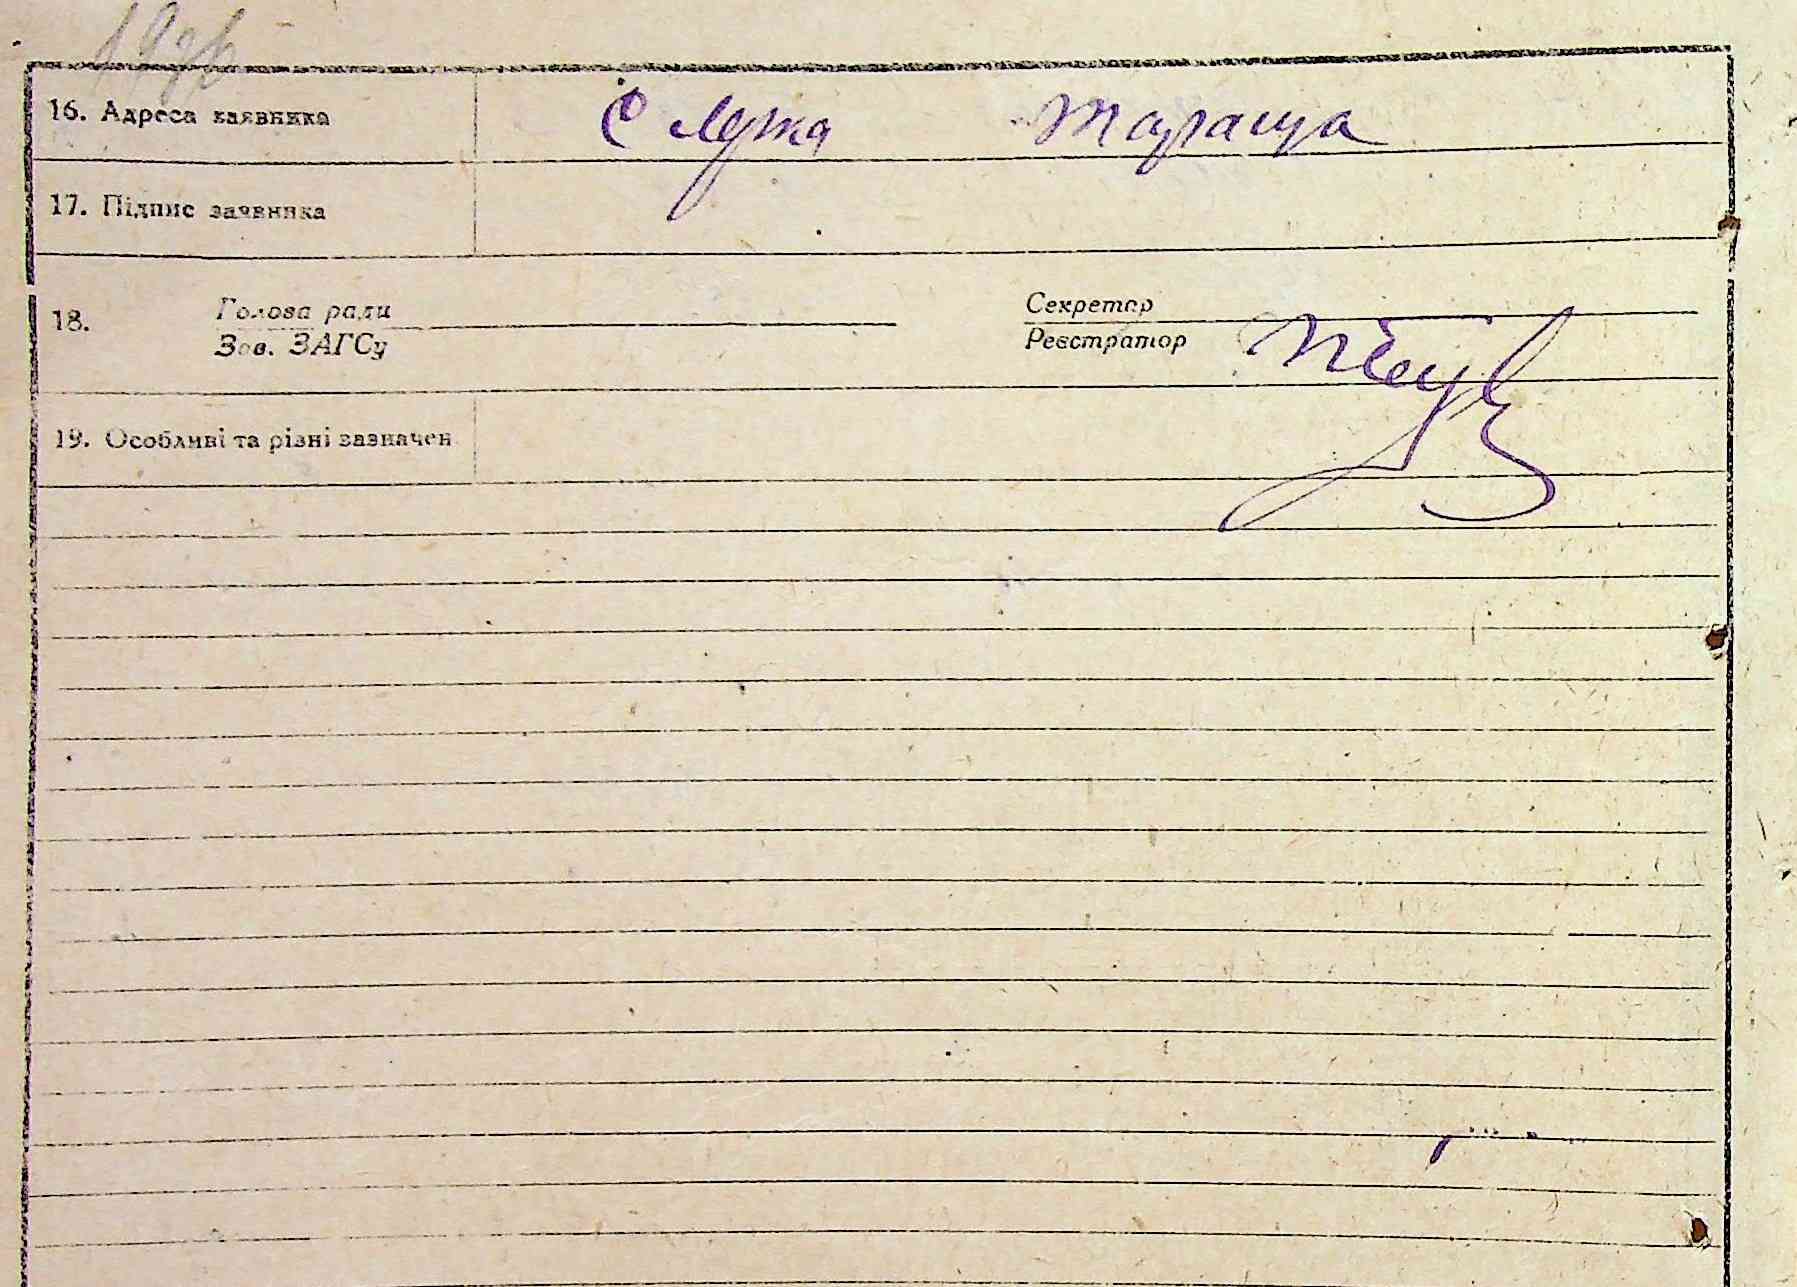 16. Адреса заявника Тараща
17. Підпис заявника
18. Голова ради Секретар
Зав. ЗАГСу Реєстратор
19. Особливі та різні зазначен